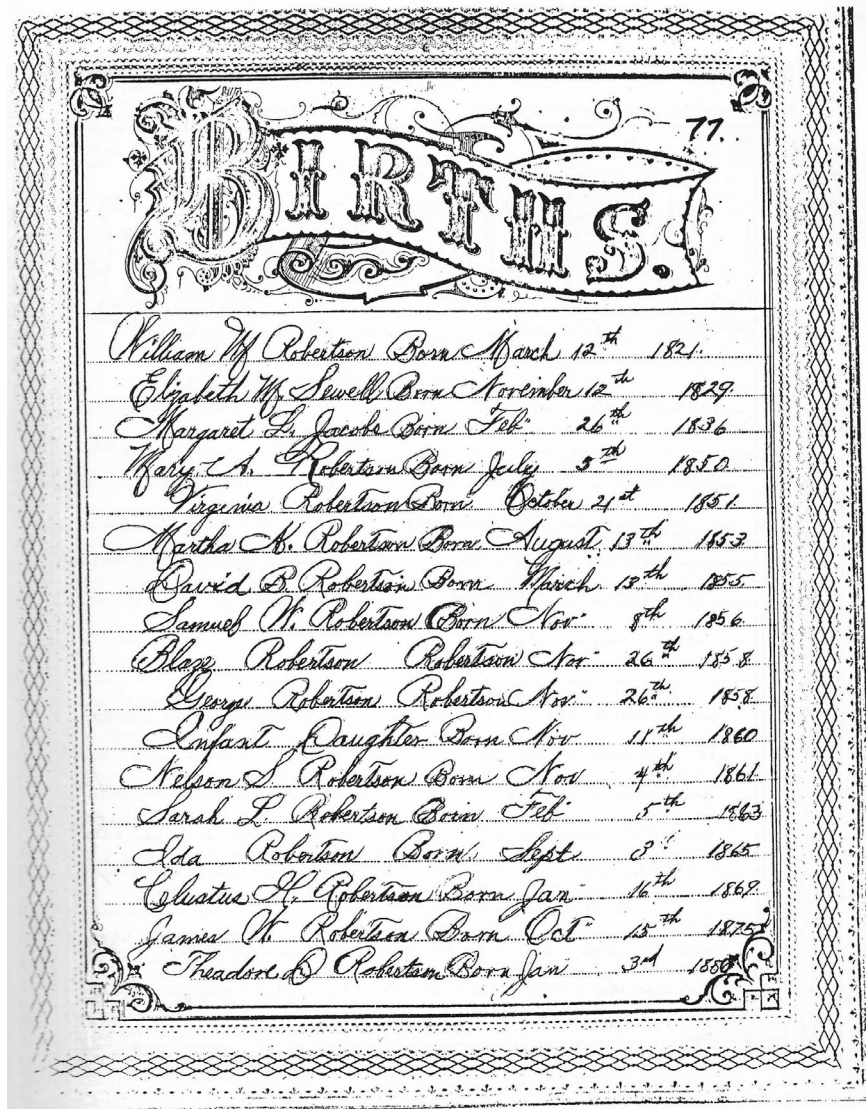 77.
BIRTHS.
William M Robertson Born March 12th 1821.
Elizabeth M. Sewell Born November 12th 1829.
Margaret L. Jacobs Born Feb" 26th 1836
Mary A. Robertson Born July 5th 1850.
Virginia Robertson Born October 21st 1851.
Martha N. Robertson Born August 13th 1853
David B Robertson Born March 13th 1855.
Samuel W. Robertson Born Nov" 8th 1856.
Robertson Robertson Nov" 26th 1858.
George Robertson Robertson Nov" 26th 1858.
Infant Daughter Born Nov 11th 1860
Nelson S. Robertson Born Nov 4th 1861.
Sarah L. Robertson Born Feb" 5th 1863
Ida Robertson Born Sept 3 1865
Celustus H. Robertson Born Jan" 16th
James W. Robertson Born Oct" 15th 1875
Theadore Robertson Born Jan 3rd